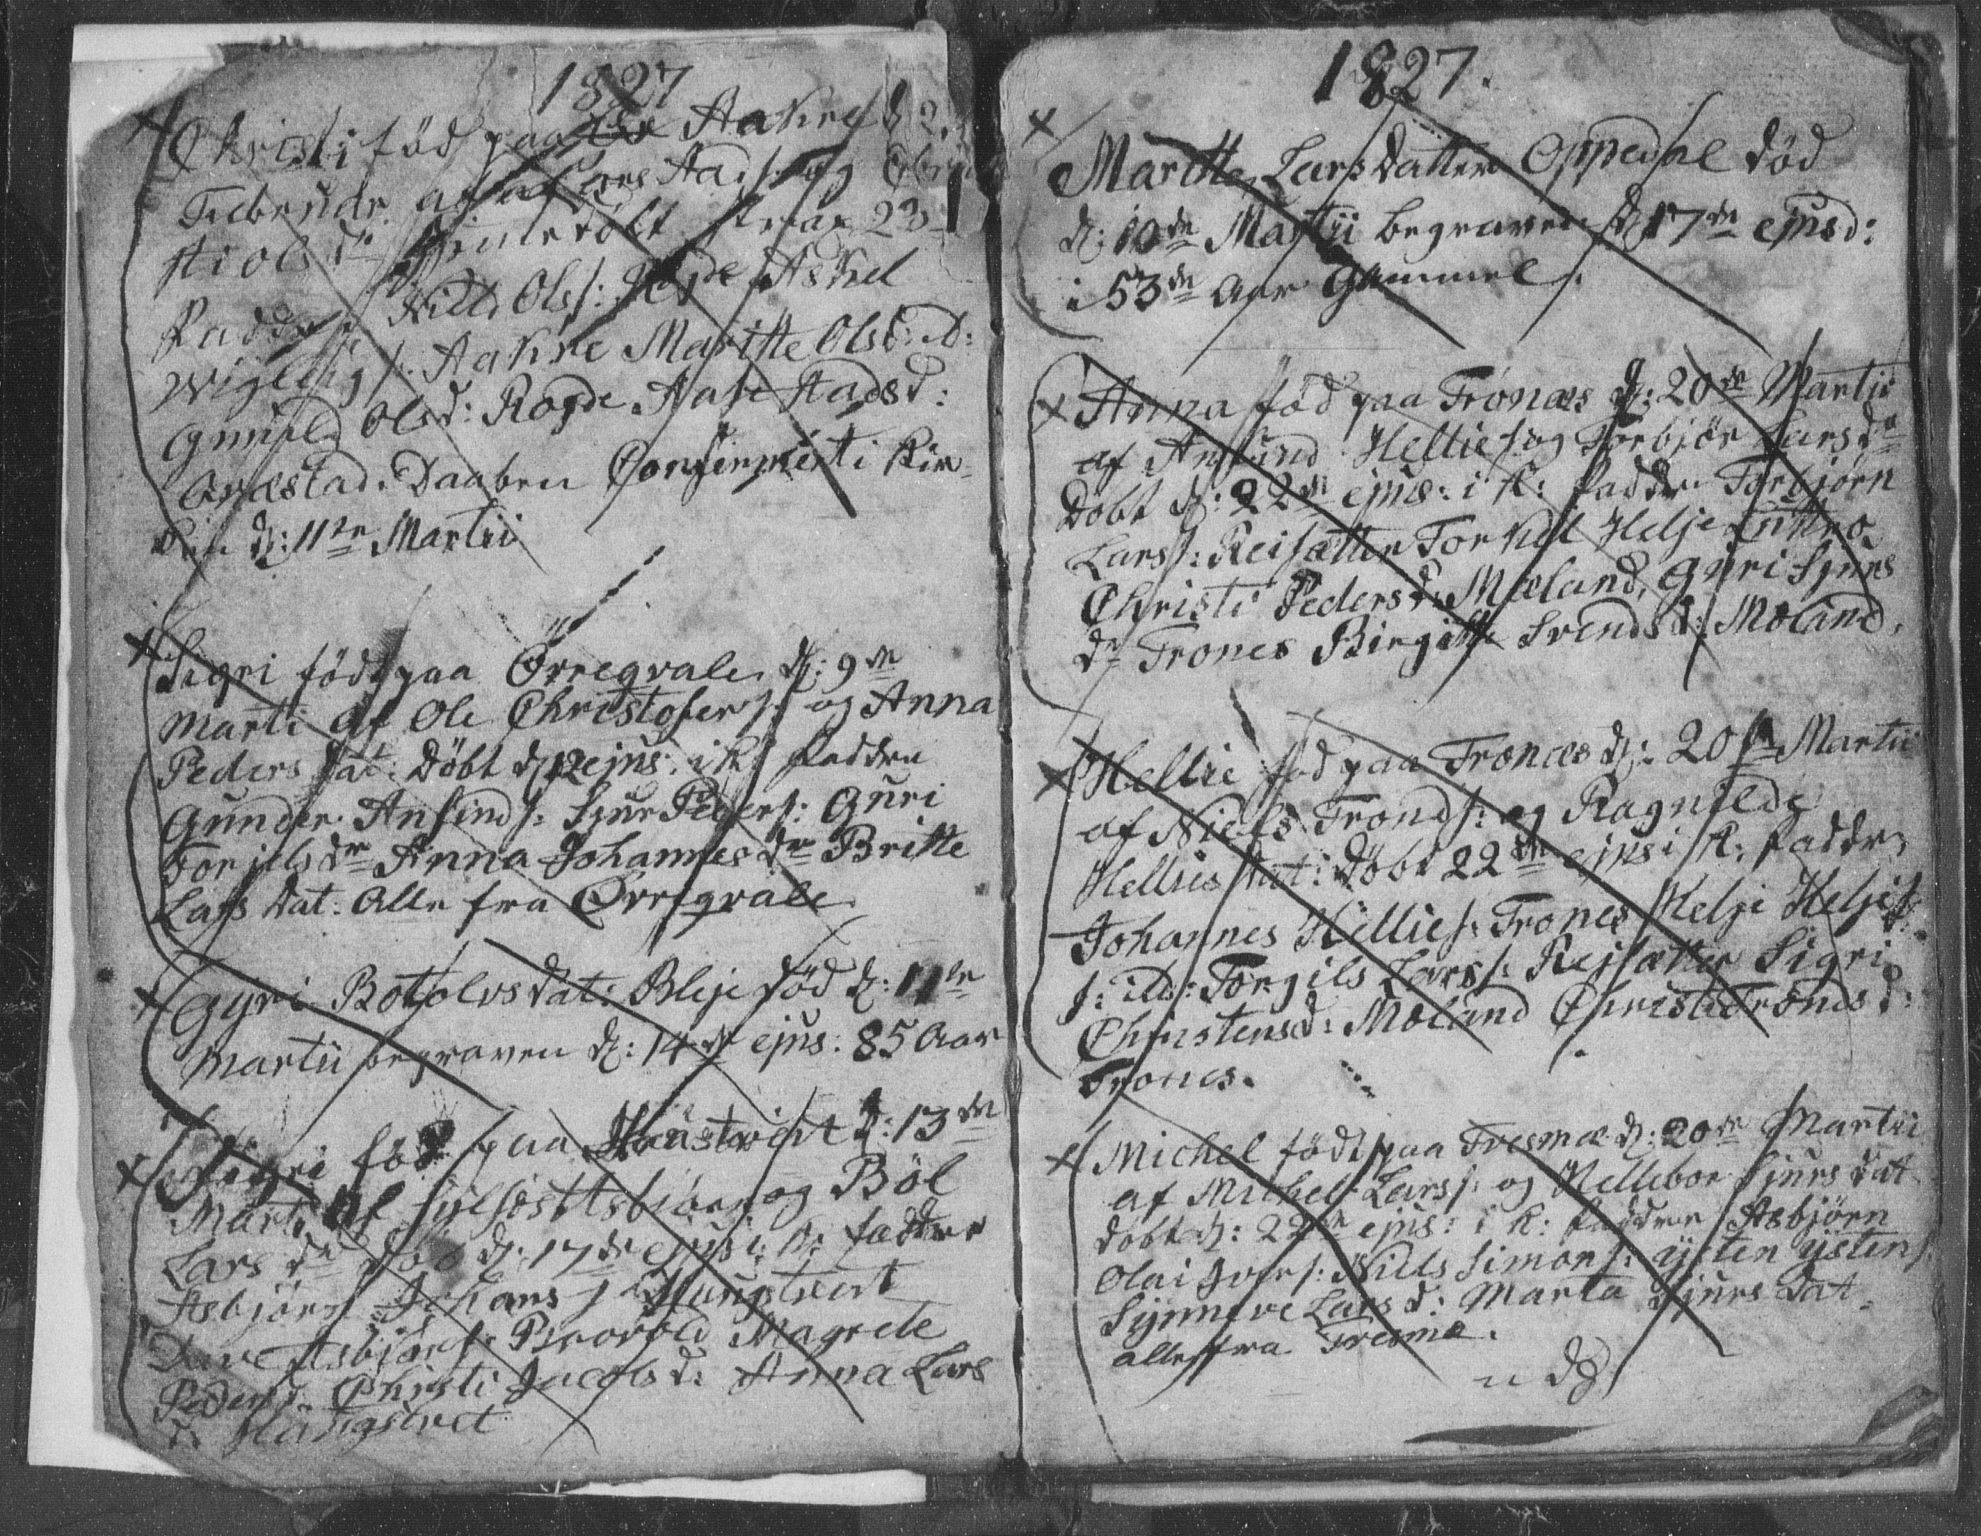 1827
Christi föd paa Aakre d: 2
Febrüar af Lars Aads: og
hiols dr Hiemedöbt
Fadder Nills Olss: Askel
Wiglegs: Aakre Maritte Olsd:
Gunild Olsd: Rogde Aase Aadsd:
Græstad. Daaben Confirmert i Kir-
ken d: 11te Martii
Sigri föd paa Örregvale d: 9de
Marti af Ole Christofers: og Anna
Peders dat: Döbt d: 12 ejus: i K: Faddre
Gunder Anfinds: Sjur Peders: Guri
Torjels dr Anna Johannes dr Britte
Lars dat: Alle fra Örregvale
Gyri Botolvs dat: Bleje död d: 11te
Martii begraven d: 14de ejus: 85 Aar
Sigri föd paa d: 13de
Marti af og Böl
Lars dr d: 17de ejus i K: Fadder
Asbjörn Johans: Haugstveit
Asbjörs: Magrete
Peders d: Christi Jacobs d: Anna Lars
d: Haugstvet
1827.
Maritte Lars datter Oppedal död
d: 10de Martii begraven d: 17de ejusd:
i 53de Aar Gammel.
Anna föd paa Tronæs d: 20de Martii
af Amund Hellies: og Torbjör Lars dr
Döbt d: 22de ejus: i K: Faddre Torbjörn
Larss: Reisætter Torkel Helje
Christi Peders d: Mæland, Guri Sjurs
dr Trones Birgitte Svends d: Moland,
Hellie föd paa Tronæs d: 20de Martii
af Niels Tronds: og Ragnilde
Hellies dat: Döbt 22de ejus i K: Faddre
Johannes Hellies: Trones Helje Helje
s: ibd: Torgils Larss: Reisætter Sigri
Christensd: Moland Christi Tronds d:
Trones.
Michel föd paa Tresmæ d: 20de Martii
af Michel Larss: og Hellebor Sjurs dat
Döbt d: 22de ejus: i K: Faddre Asbjörn
Olai Ivers: Niels Simons: ysten ystens
Synneve Lars d: Marta Sjurs dat
alle fra Tresmæ.